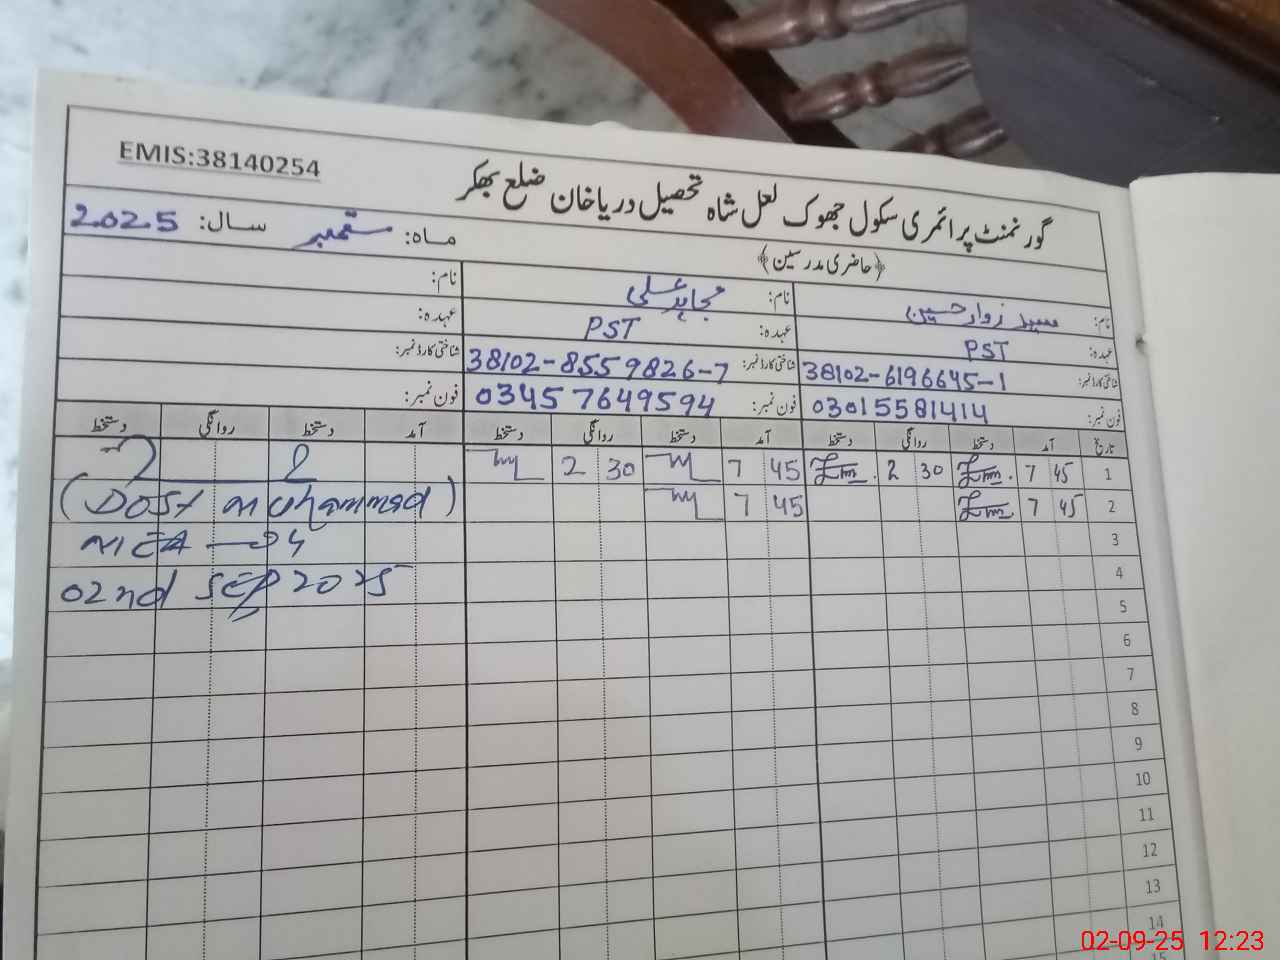 EMIS:38140254
گورنمنٹ پرائمری سکول جھوک لعل شاہ تحصیل دریاخان ضلع بھکر
ماہ: ستمبر سال: 2025
﴿حاضری مدرسین﴾
نام: سید زوار حسین نام: مجاہد علی نام:
عہدہ: PST عہدہ: PST عہدہ:
شناختی کارڈ نمبر: 38102-6196645-1 شناختی کارڈ نمبر: 38102-8559826-7 شناختی کارڈ نمبر:
فون نمبر: 03015581414 فون نمبر: 03457649594 فون نمبر:
تاریخ آمد دستخط روانگی دستخط آمد دستخط روانگی دستخط آمد دستخط روانگی دستخط
1 7 45 2 30 7 45 2 30
2 7 45 7 45
(Dost Muhammad)
MEA → 4
02nd SEP 2025
3
4
5
6
7
8
9
10
11
12
13
14
15
02-09-25 12:23